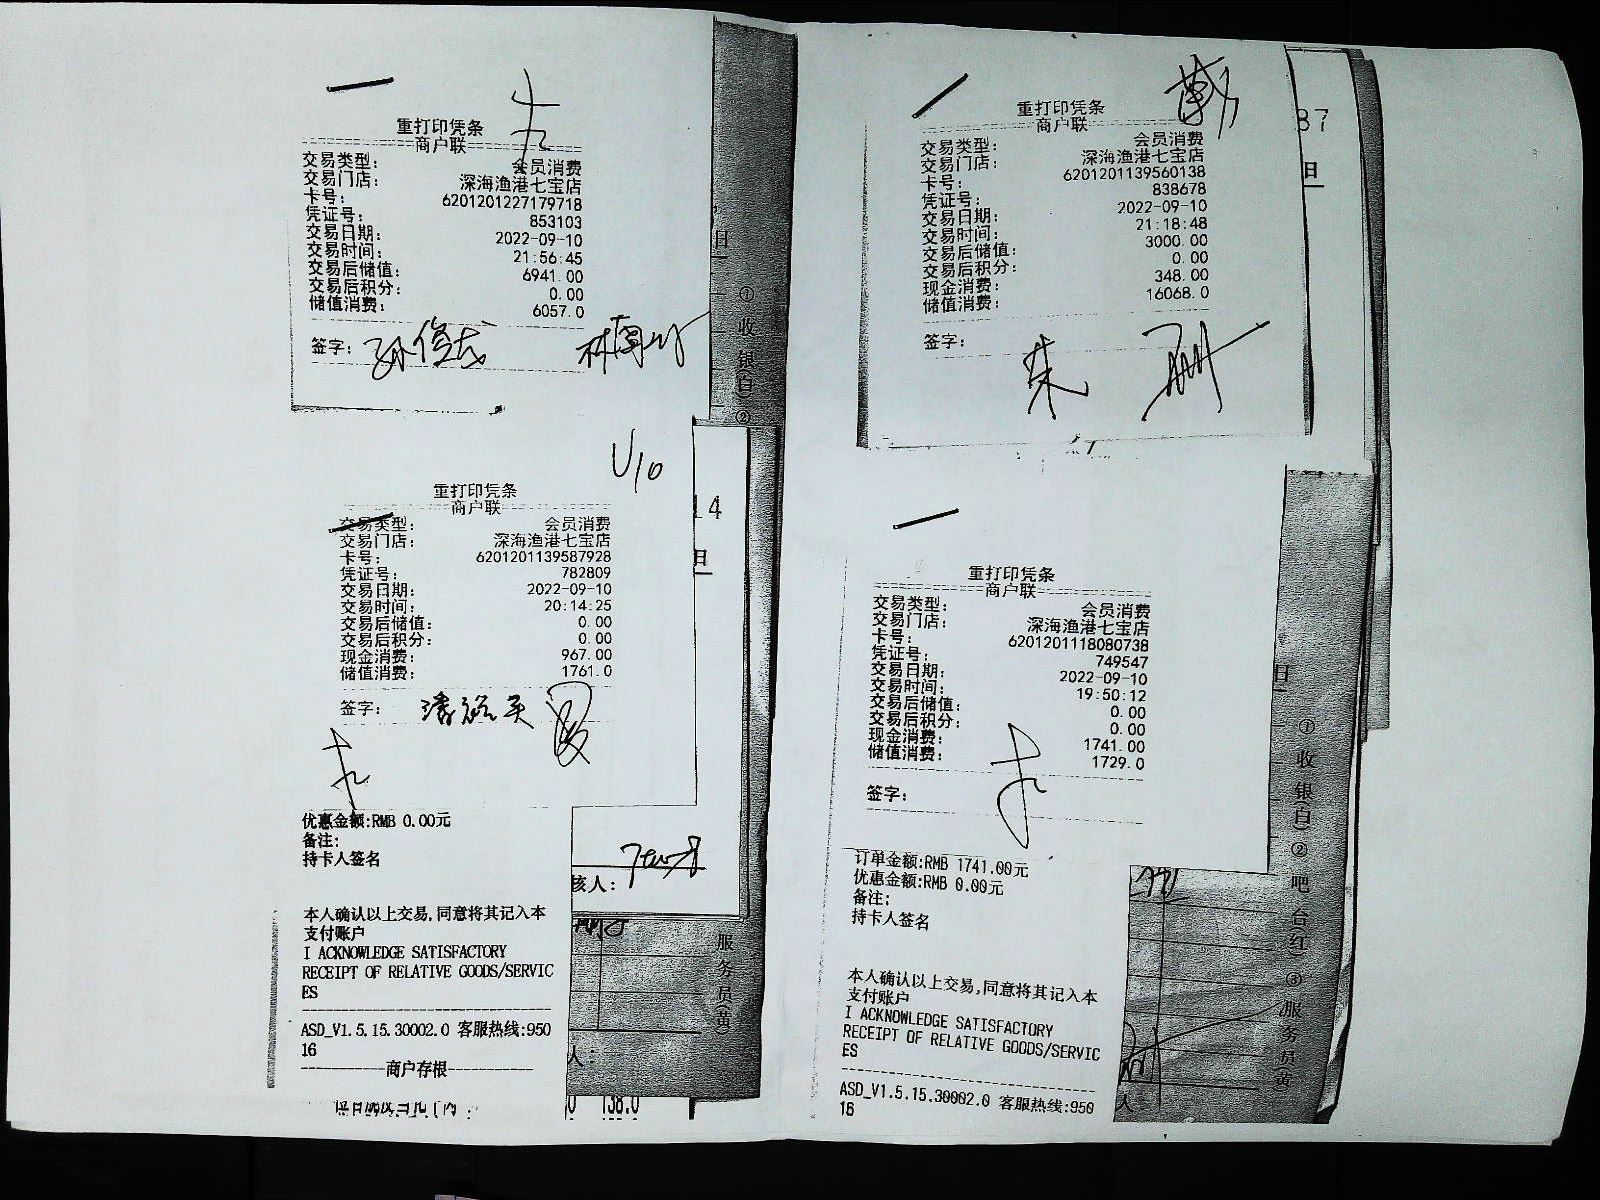 重打印凭条
商户联
交易类型: 会员消费
交易门店: 深海渔港七宝店
卡号: 6201201227179718
凭证号: 853103
交易日期: 2022-09-10
交易时间: 21:56:45
交易后储值: 6941.00
交易后积分: 0.00
储值消费: 6057.0
签字:
日
①收银(白)②
U10
重打印凭条
商户联
交易类型: 会员消费
交易门店: 深海渔港七宝店
卡号: 6201201139587928
凭证号: 782809
交易日期: 2022-09-10
交易时间: 20:14:25
交易后储值: 0.00
交易后积分: 0.00
现金消费: 967.00
储值消费: 1761.0
签字:
14
日
优惠金额:RMB 0.00元
备注:
持卡人签名
核人:
本人确认以上交易,同意将其记入本
支付账户
I ACKNOWLEDGE SATISFACTORY
RECEIPT OF RELATIVE GOODS/SERVIC
ES
ASD_V1.5.15.30002.0 客服热线:950
16
商户存根
服务员(黄)
人:
138.0
重打印凭条
商户联
交易类型: 会员消费
交易门店: 深海渔港七宝店
卡号: 6201201139560138
凭证号: 838678
交易日期: 2022-09-10
交易时间: 21:18:48
交易后储值: 3000.00
交易后积分: 0.00
现金消费: 348.00
储值消费: 16068.0
签字:
朱
37
日
重打印凭条
商户联
交易类型: 会员消费
交易门店: 深海渔港七宝店
卡号: 6201201118080738
凭证号: 749547
交易日期: 2022-09-10
交易时间: 19:50:12
交易后储值: 0.00
交易后积分: 0.00
现金消费: 1741.00
储值消费: 1729.0
签字:
日
①收银(白)②吧台(红)③服务员(黄)
订单金额:RMB 1741.00元
优惠金额:RMB 0.00元
备注:
持卡人签名
本人确认以上交易,同意将其记入本
支付账户
I ACKNOWLEDGE SATISFACTORY
RECEIPT OF RELATIVE GOODS/SERVIC
ES
ASD_V1.5.15.30002.0 客服热线:950
16
人